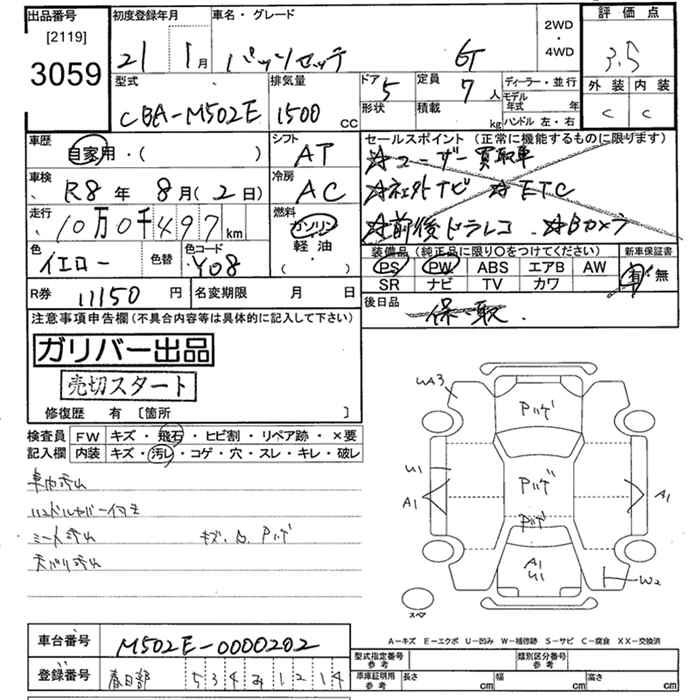 出品番号 初度登録年月 車名・グレード 2WD・4WD 評価点
[2119]
3059
21 1月 パッソセッテ GT 3.5
型式 排気量 ドア 5 定員 7人 ディーラー・並行 外装 内装
CBA-M502E 1500cc 形状 積載 kg モデル年式 年 C C
ハンドル 左・右
車歴 自家用・( ) シフト AT セールスポイント (正常に機能するものに限ります)
☆ユーザー買取車
車検 R8年 8月(2日) 冷房 AC ☆社外ナビ ☆ETC
走行 10万0千497km 燃料 ガソリン ☆前後ドラレコ ☆Bカメラ
軽油・( )
色 イエロー 色替 色コード Y08
装備品 (純正品に限り○をつけてください) 新車保証書
PS PW ABS エアB AW 有・無
SR ナビ TV カワ
R券 11150円 名変期限 月 日 後日品 保・取
注意事項申告欄(不具合内容等は具体的に記入して下さい)
ガリバー出品
売切スタート
修復歴 有 [箇所 ]
検査員 FW キズ・飛石・ヒビ割・リペア跡・×要
記入欄 内装 キズ・汚レ・コゲ・穴・スレ・キレ・破レ
シート汚れ キズ、A、Pハゲ
UA3
Pハゲ
U1
A1
Pハゲ
A1
Pハゲ
A1
U1
W2
スペア
A-キズ E-エクボ U-凹み W-補修跡 S-サビ C-腐食 XX-交換済
車台番号 M502E-0000202
登録番号 春日部 534 1214
型式指定番号 参考 類別区分番号 参考
車庫証明用 参考 長さ cm 幅 cm 高さ cm